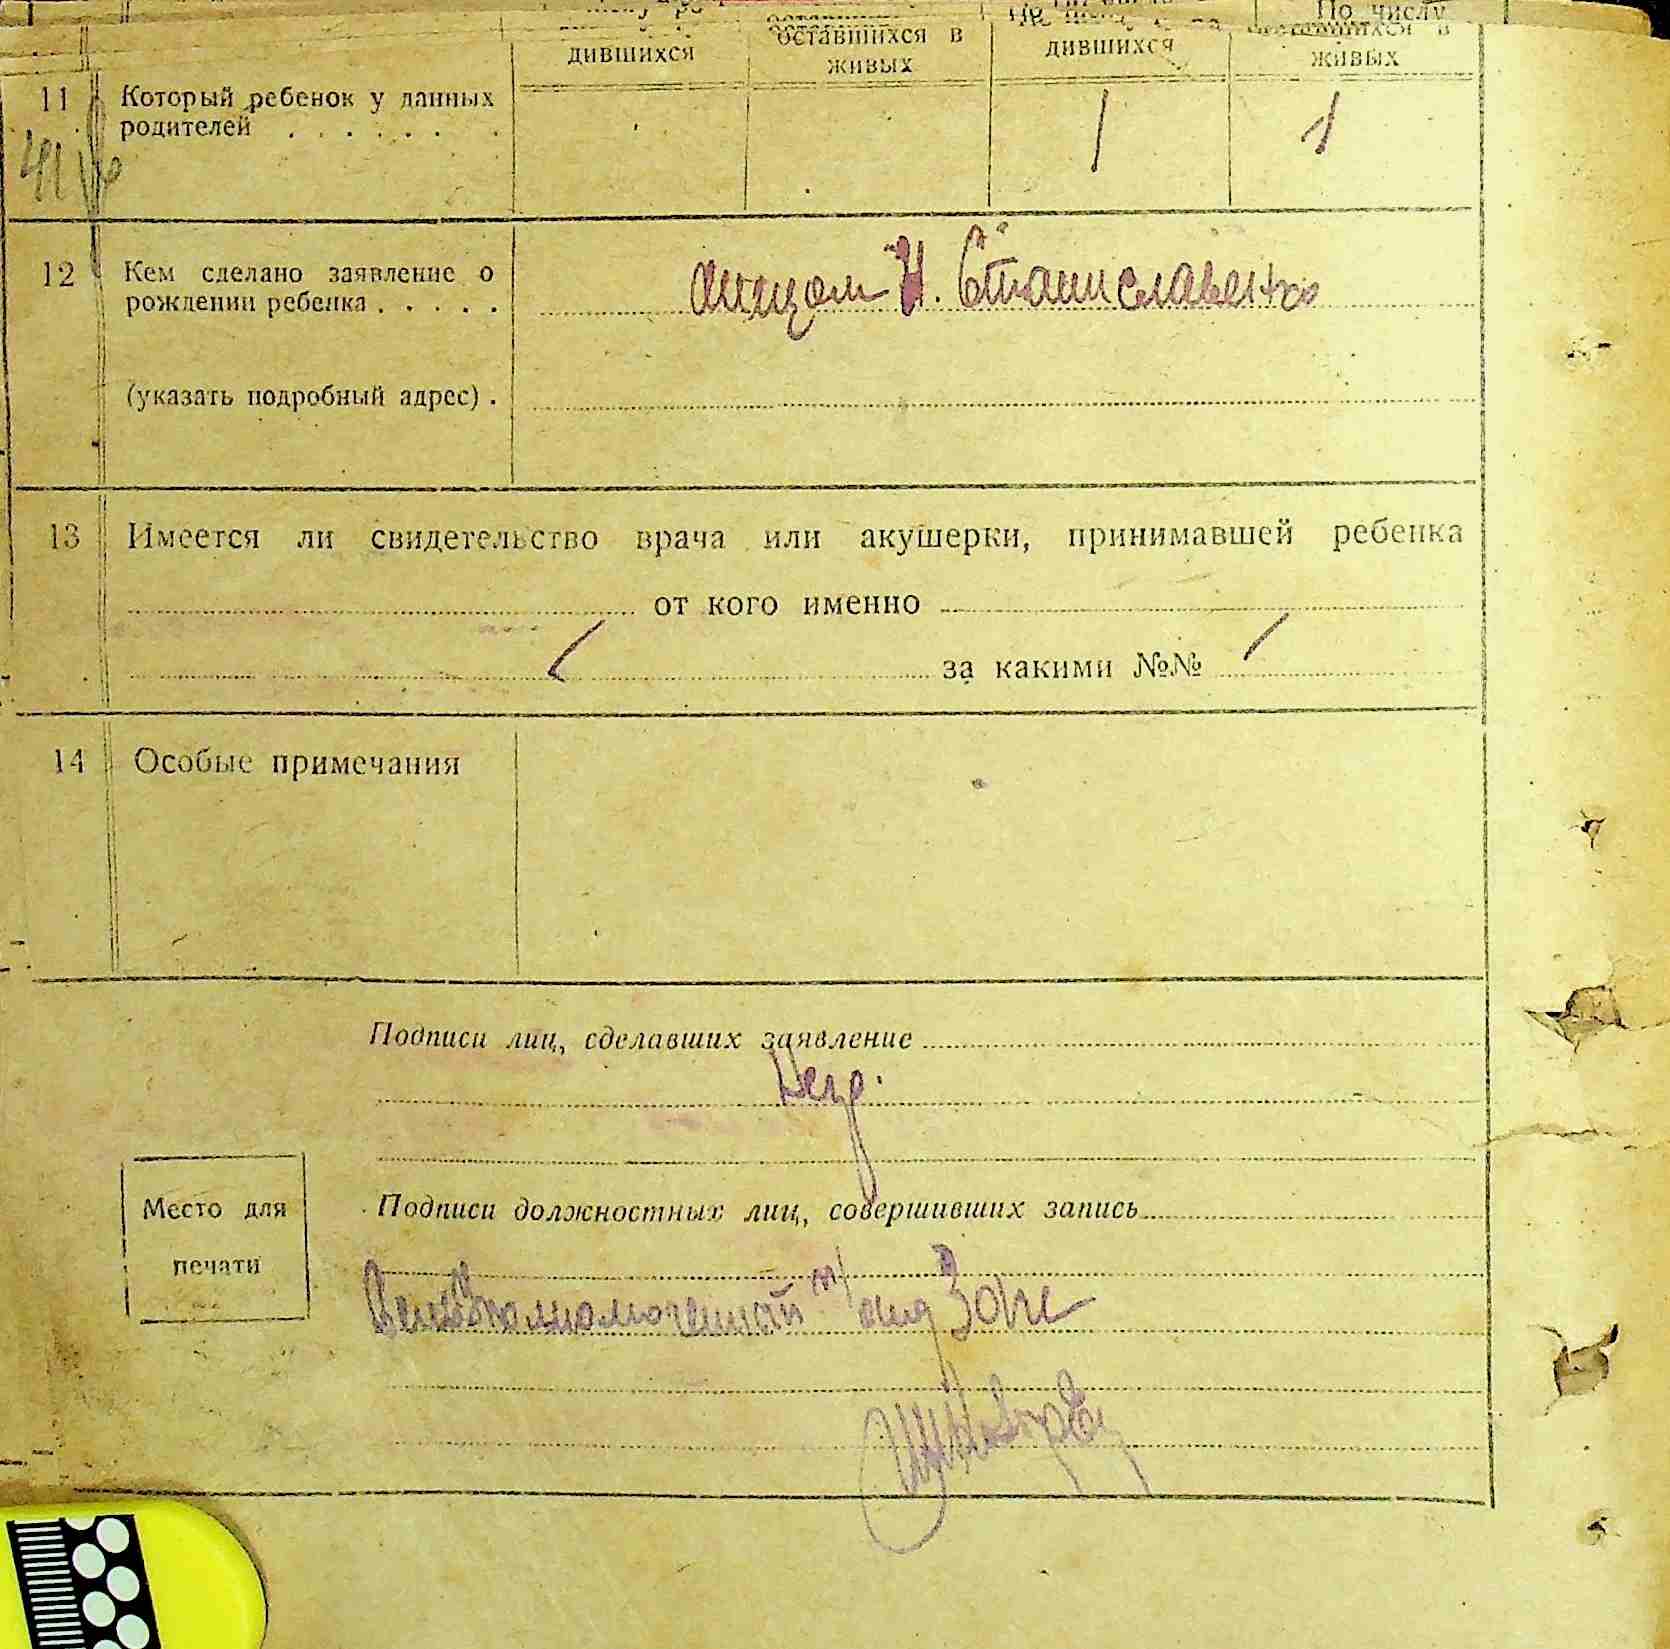 оставшихся в По числу
дившихся живых дившихся оставшихся в живых
11 Который ребенок у данных
родителей . . . . . . 1 1
12 Кем сделано заявление о
рождении ребенка . . . . . отцом Н. Станиславенко
(указать подробный адрес) .
13 Имеется ли свидетельство врача или акушерки, принимавшей ребенка
от кого именно
за какими №№
14 Особые примечания
Подписи лиц, сделавших заявление
Негр.
Место для
печати
Подписи должностных лиц, совершивших запись